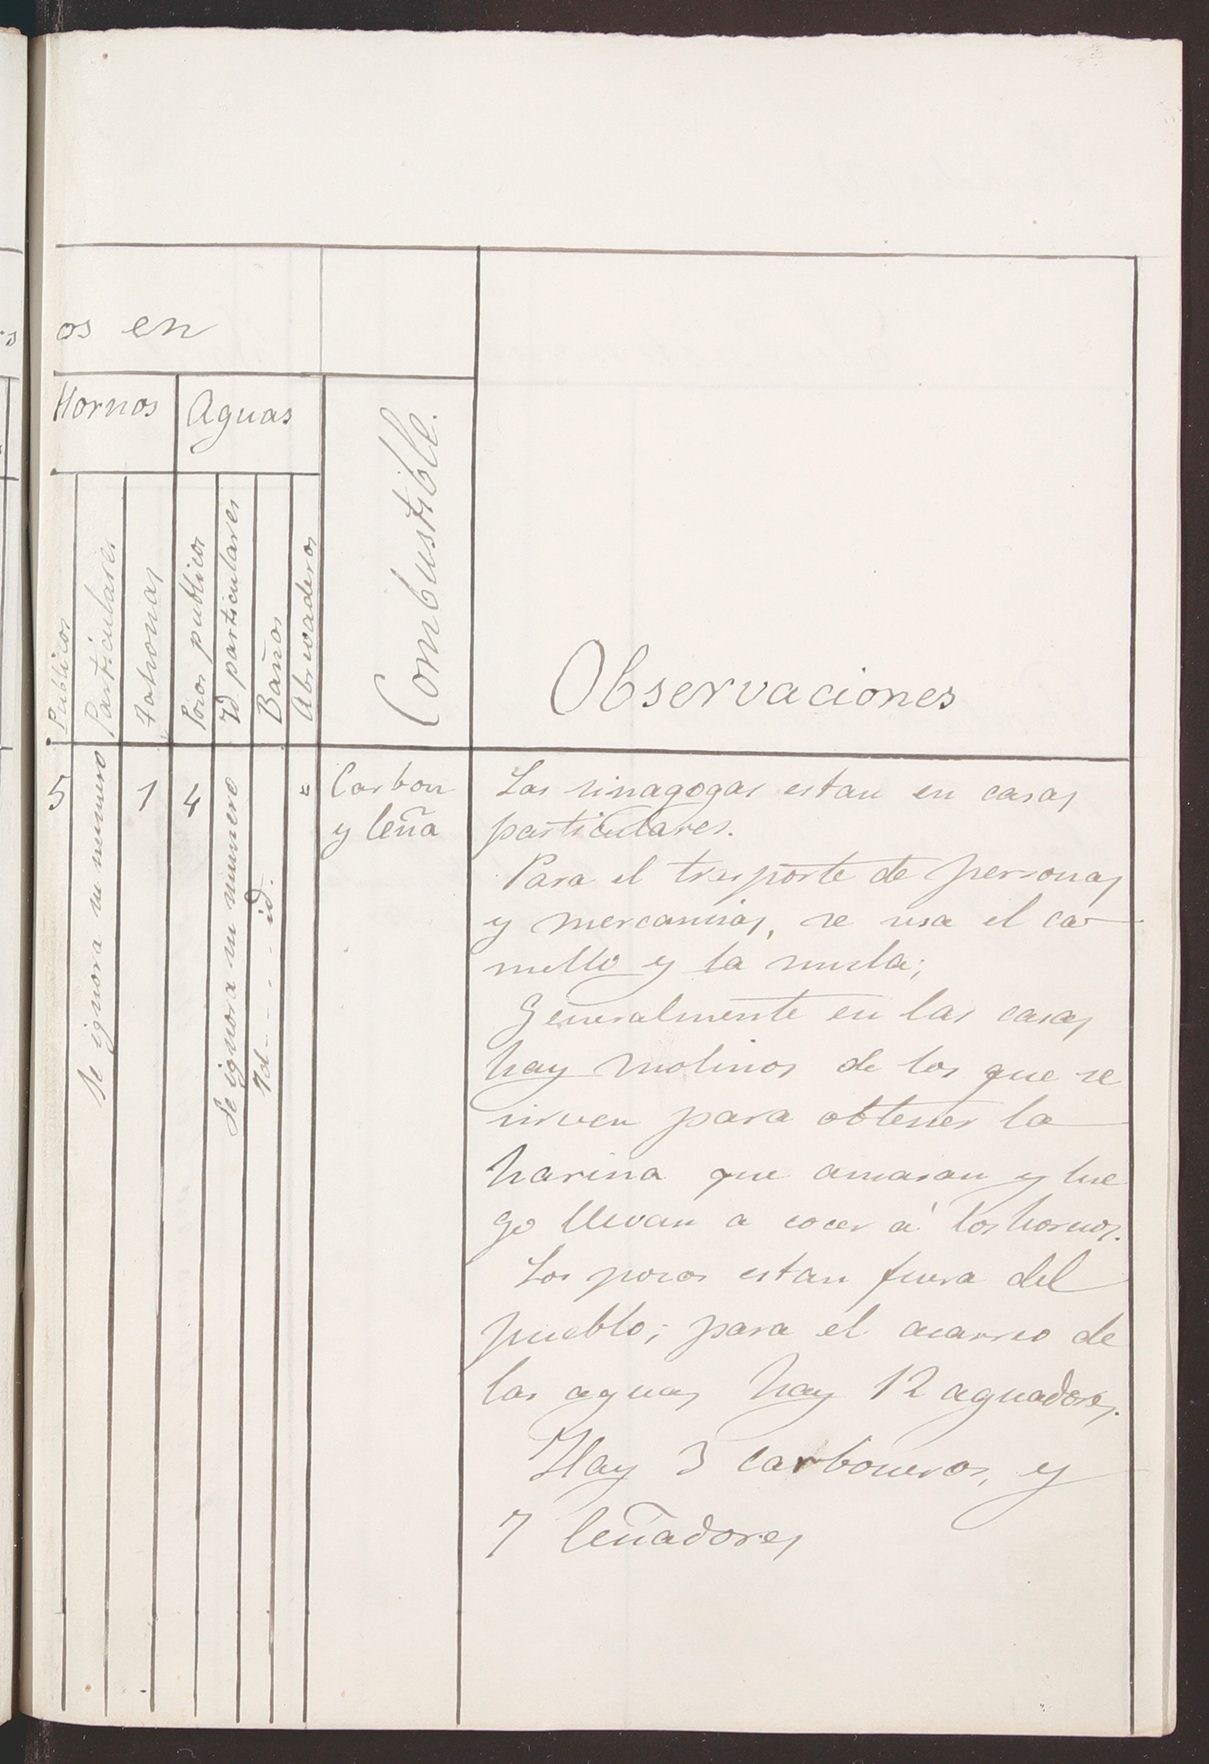 os en
Hornos
Aguas
Publicos
Particulares
Tahonas
Pozos publicos
Id particulares
Baños
Abrevaderos
Combustible.
Observaciones
5
Se ignora su numero
1
4
Se ignora su numero
Id - - - - id.
"
Carbon
y leña
Las sinagogas estan en casas
particulares.
Para el trasporte de personas
y mercancias, se usa el ca-
mello y la mula;
Generalmente en las casas
hay molinos de los que se
sirven para obtener la
harina que amasan y lue
go llevan a cocer á los hornos.
Los pozos estan fuera del
pueblo; para el acarreo de
las aguas hay 12 aguadores.
Hay 3 carboneros, y
7 leñadores